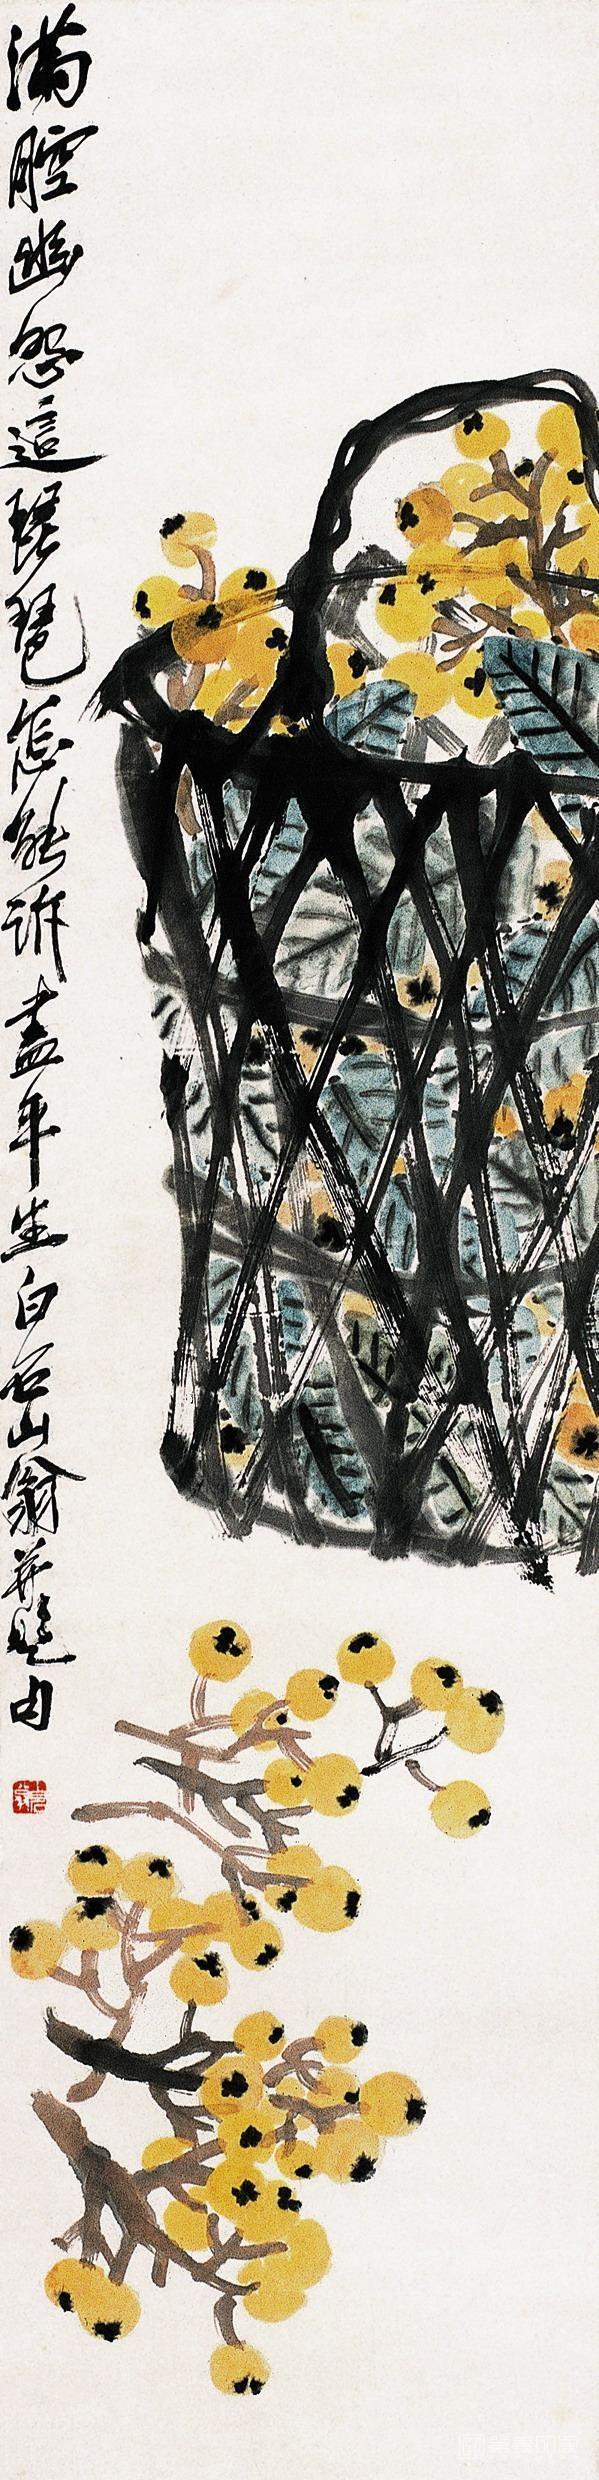 满腔幽怨這琵琶怎能诉盡平生白石山翁并題句